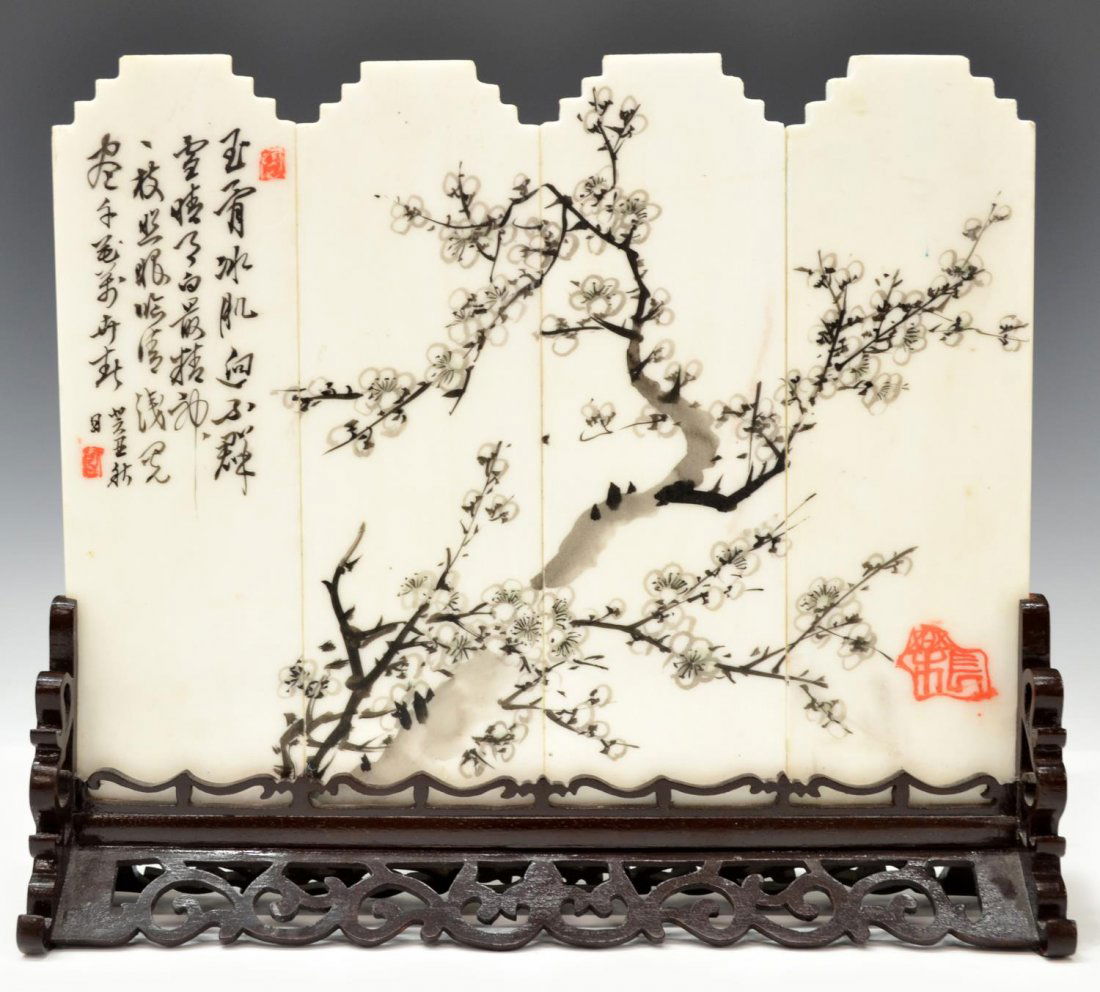 玉骨冰肌迥不群
雪晴月白最精神
一枝照眼临清浅
尽千花万卉春
癸丑秋
日